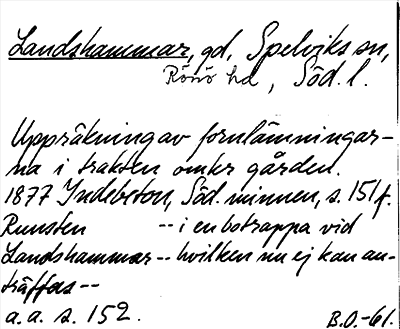 Landshammar, gd, Spelviks sn,
Rönö hd, Söd. l.
Uppräkning av fornlämningar-
na i trakten omkr gården.
1877 Indebetou, Söd. minnen, s. 151 f.
Runsten -- i en botrappa vid
Landshammar -- hvilken nu ej kan an-
träffas --
a. a. s. 152.
B.O.-61.